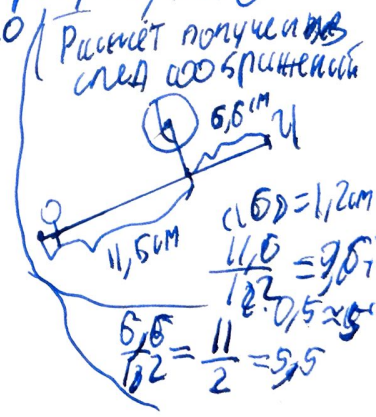 Рисчёт получен из
след соображений
6,6 см
Ч
11,5 см
= 1,2 см
11,6
1,2
0,5 ≈
6,6/1,2 = 11/2 = 5,5